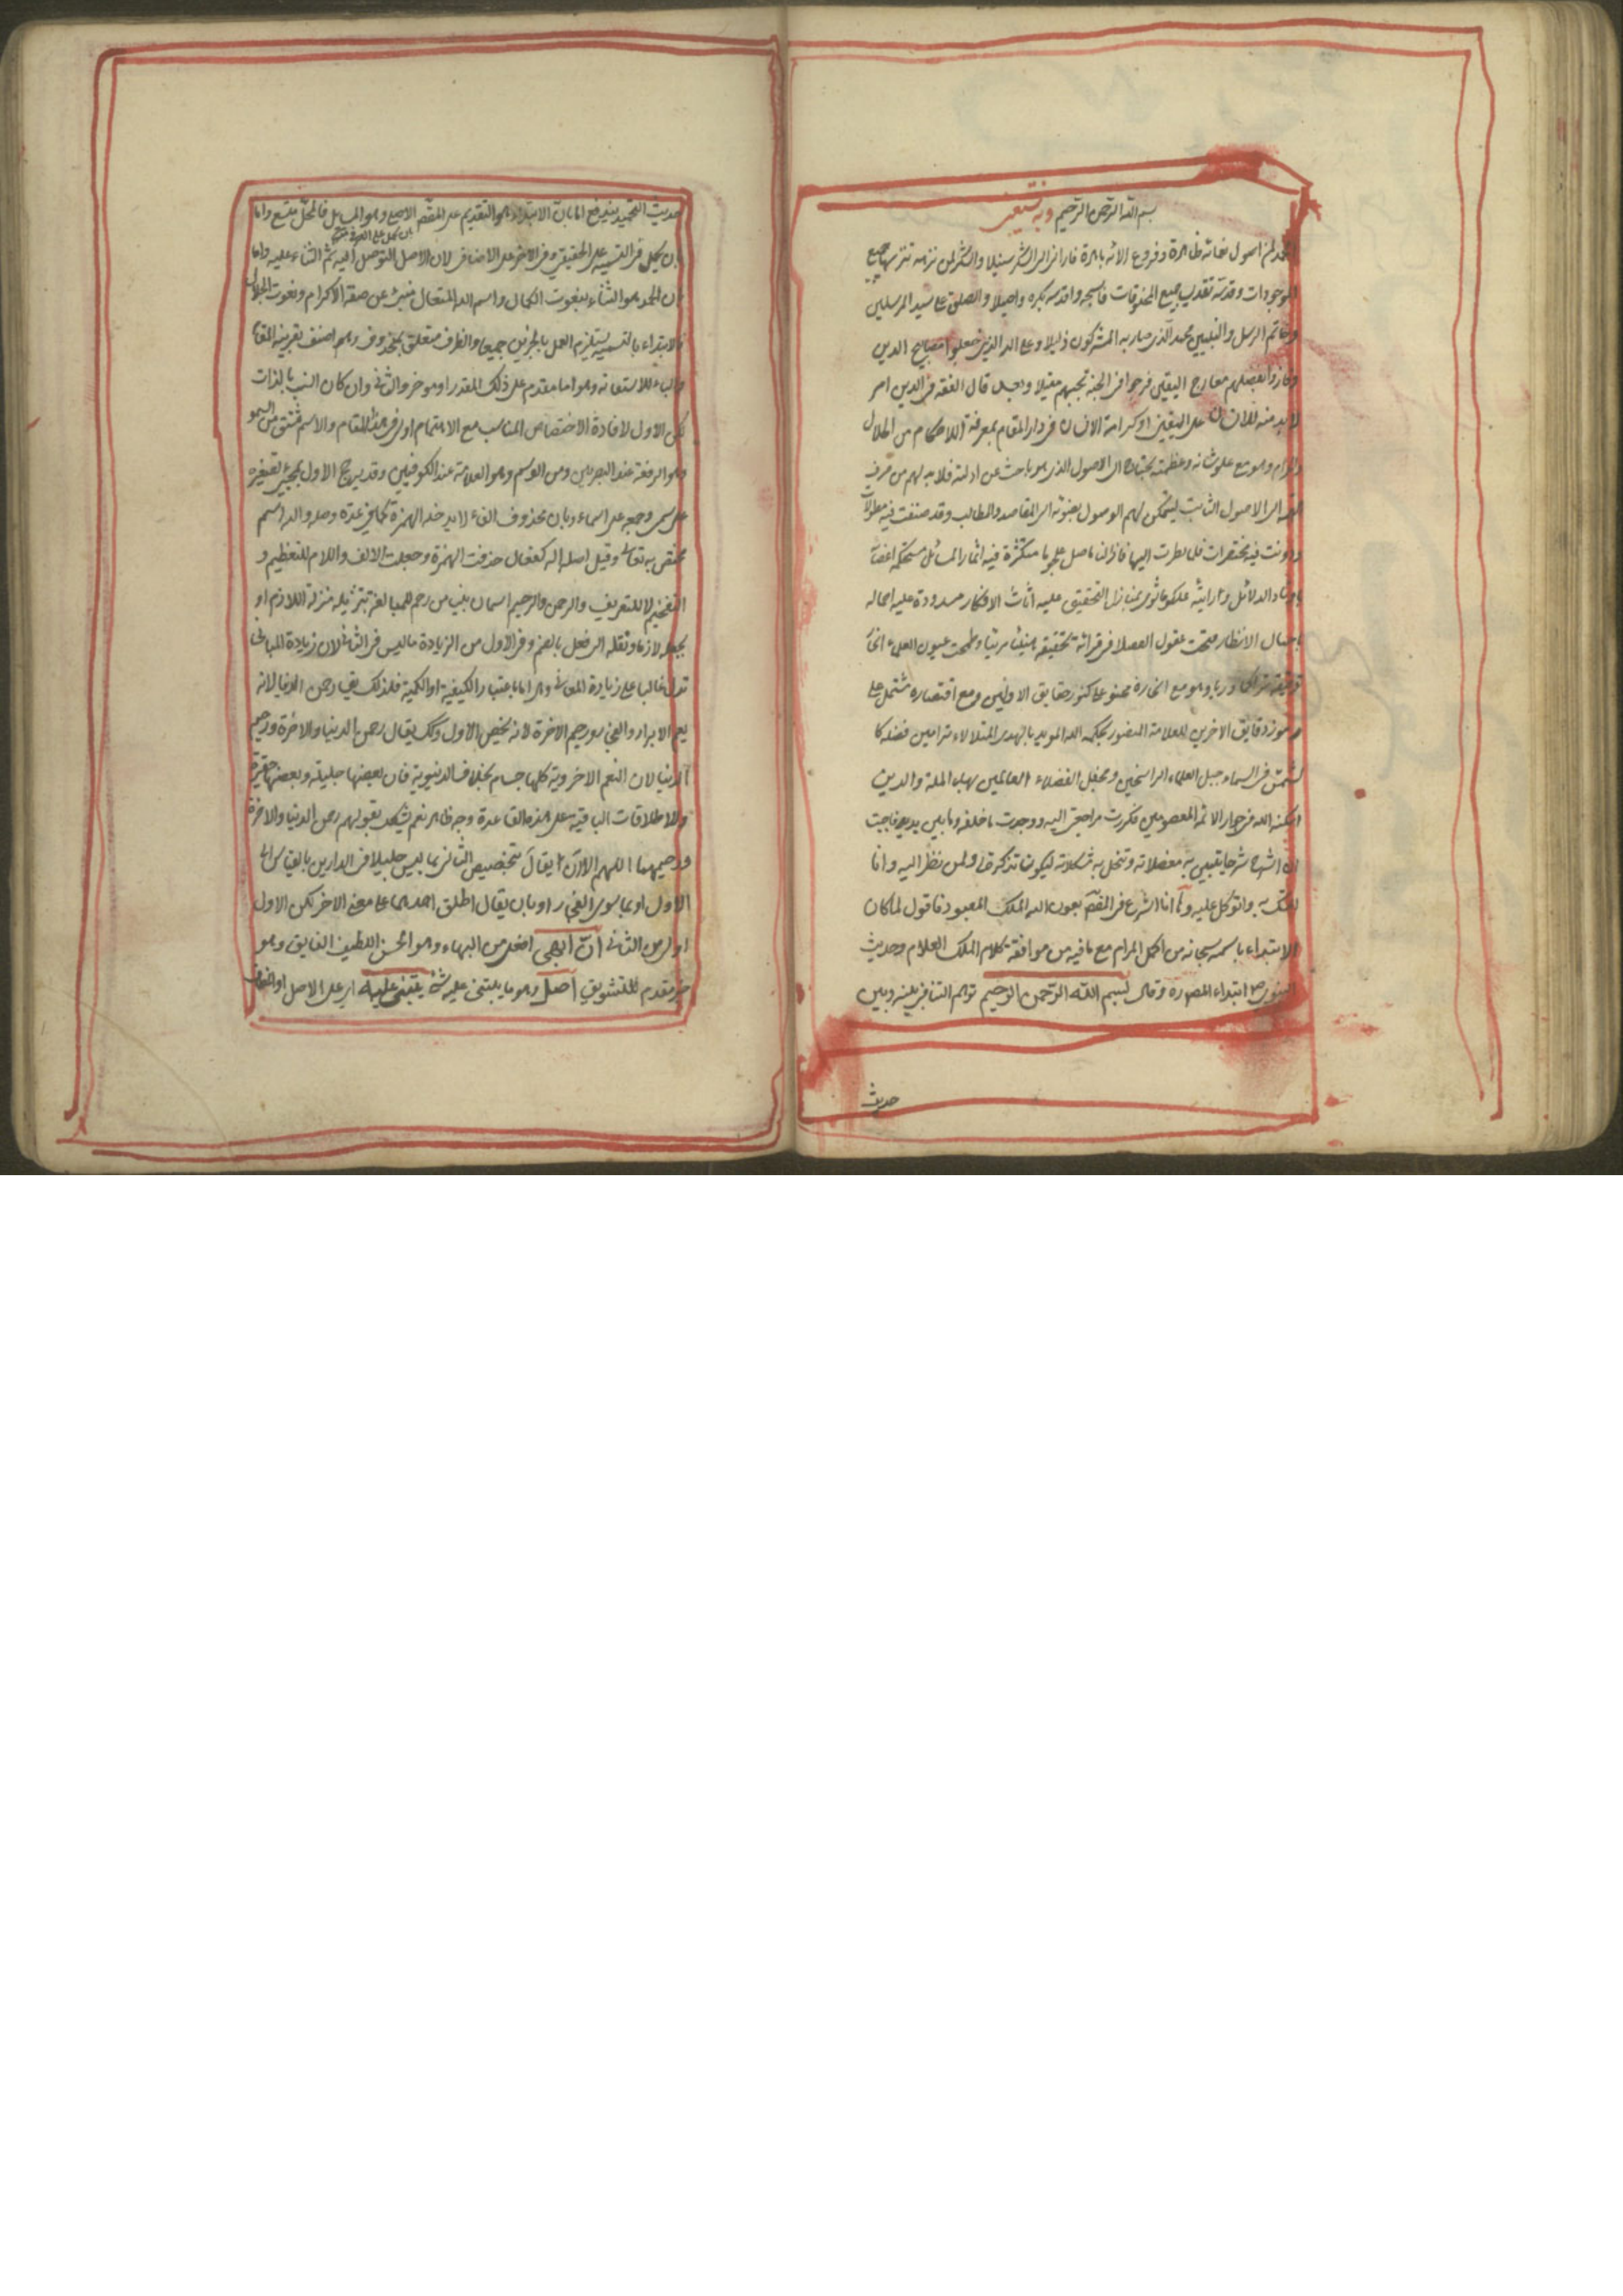 بسم الله الرحمن الرحيم وبه نستعين
الموجودات وقدسه تقديس جميع المخلوقات فاسبحه واقدسه بكرة واصيلا والصلوة على سيد المرسلين
وخاتم الرسل والنبيين محمد الذى صار به المشركون ذليلا وعلى اله الذين جعلوا مصابيح الدين
وفازوا بفضلهم معارج اليقين فرجوا فى الجنة بحبهم مقيلا وبعد قال الفقه فى الدين امر
لا بد منه للانسان على اليقين او كرامة الانسان فى دار المقام بمعرفة الاحكام من الحلال
والحرام وهو مع علو شانه وعظمته يحتاج الى الاصول الذى هو باحث عن ادلته فلا بد لهم من صرف
الى الاصول الثابت ليتمكن لهم الوصول بعونه الى المقاصد والمطالب وقد صنفت فيه مطولات
ودونت فيه مختصرات فلما نظرت اليها فاذا
باوتاد الدلائل عليه اثاث الافكار مسدودة عليه
باحبال الانظار عقول الفضلا فى قرائة تحقيقه هنيئا مريئا وطمحت عيون العلماء
وهو مع محتو على كنوز حقايق الاولين ومع اختصاره مشتمل على
رموز دقايق الاخرين للعلامة
لشمس فى السماء جبل العلماء الراسخين ومحفل الفضلاء العالمين بهاء الملة والدين
اسكنه الله فى جوار الائمة المعصومين فكررت مراجعتى اليه ووجدت ما خلفه وما بين يديه فاجبت
ان اشرح شرحا يتبين به معضلاته وتنحل به مشكلاته ليكون تذكرة لى ولمن نظر اليه وانا
اتمسك به واتوكل عليه وها انا اشرع فى المقصود بعون الله الملك المعبود فاقول لما كان
الابتداء باسمه سبحانه من اكمل المرام مع ما فيه من موافقة كلام الملك العلام وحديث
النبوى ص ابتداء المص ره وقال بسم الله الرحمن الرحيم توهم التنافى بينه وبين
حديث
حديث التحميد يندفع اما بان الابتداء هو التقديم على المقصد الاصلى وهو المسائل فالمحل متسع واما
بان يحمل فى التسمية على الحقيقى وفى الاخر على الاضافى لان الاصل التوصل اليه ثم الثناء عليه واما
بان الحمد هو الثناء بنعوت الكمال واسم الله المتعال منبئ عن صفة الاكرام ونعوت الجلال
فالابتداء بالتسمية يستلزم العمل بالخبرين جميعا والظرف متعلق بمحذوف وهو اصنف بقرينة المقام
والباء للاستعانة وهو اما مقدم على ذلك المقدر او موخر والثانى وان كان انسب بالذات
لكن الاول لافادة الاختصاص المناسب مع الاهتمام اولى فى هذا المقام والاسم مشتق من السمو
وهو الرفعة عند البصريين ومن الوسم وهو العلامة عند الكوفيين وقد يرجح الاول بمجئ تصغيره
على سمى وجمعه على اسماء وبان محذوف الفاء لا يدخله الهمزة كما فى عدة وصلة والله اسم
مختص به تعالى وقيل اصله اله كفعال حذفت الهمزة وجعلت الالف واللام للتعظيم و
التفخيم لا للتعريف والرحمن والرحيم اسمان بنيا من رحم للمبالغة بتنزيله منزلة اللازم او
بجعله لازما ونقله الى فعل بالضم وفى الاول من الزيادة ما ليس فى الثانى لان زيادة المبانى
تدل غالبا على زيادة المعانى وهى اما باعتبار الكيفية او الكمية فلذلك يقال رحمن الدنيا لانه
يعم الابرار والفجار ورحيم الاخرة لانه يخص الاول وكك يقال رحمن الدنيا والاخرة ورحيم
الدنيا لان النعم الاخروية كلها جسام بخلاف الدنيوية فان بعضها جليلة وبعضها حقيرة
والاطلاقات الباقية على هذه القاعدة وجه ظاهر نعم يشكل بقولهم رحمن الدنيا والاخرة
ورحيمهما اللهم الا ان يقال بتخصيص الثانى بما ليس جليلا فى الدارين بالقياس الى
الاول او بما سوى الفجار او بان يقال اطلق احدهما على معنى الاخر لكن الاول
اولى من الثانى ان ابهى افعل من البهاء وهو الحسن اللطيف الفايق وهو
خبر مقدم للتشويق اصل وهو ما يبتنى عليه شئ يبتنى عليه اى على الاصل